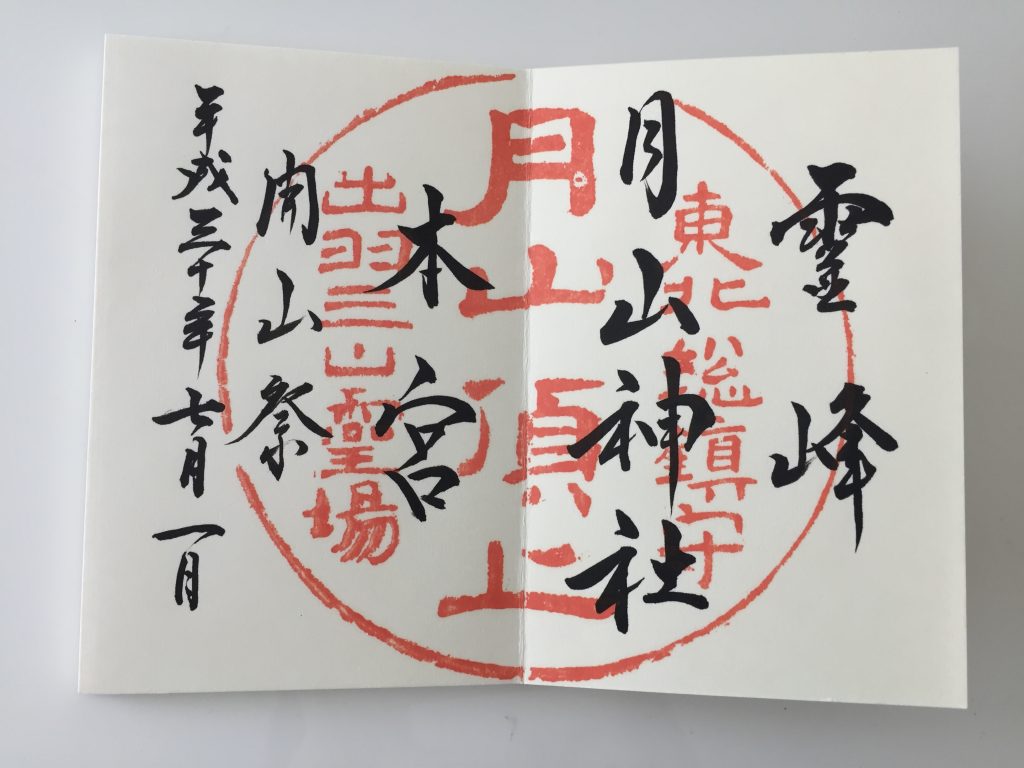 靈峰
月山神社
本宮
開山祭
平成三十年七月一日
東北総鎮守
月山頂上
出羽三山霊場